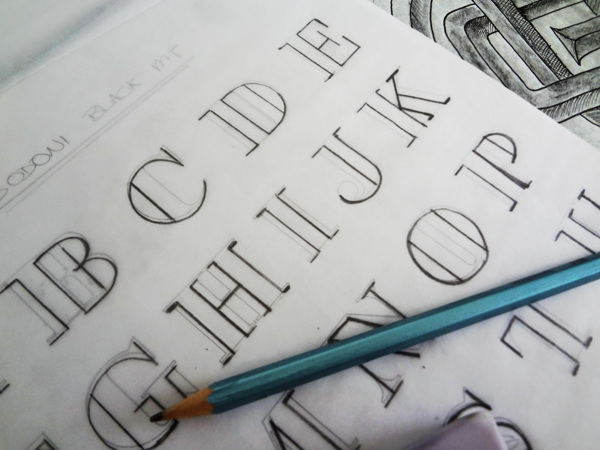 BODONI BLACK MT
B C D E
G H I J K
M N O P
S T U